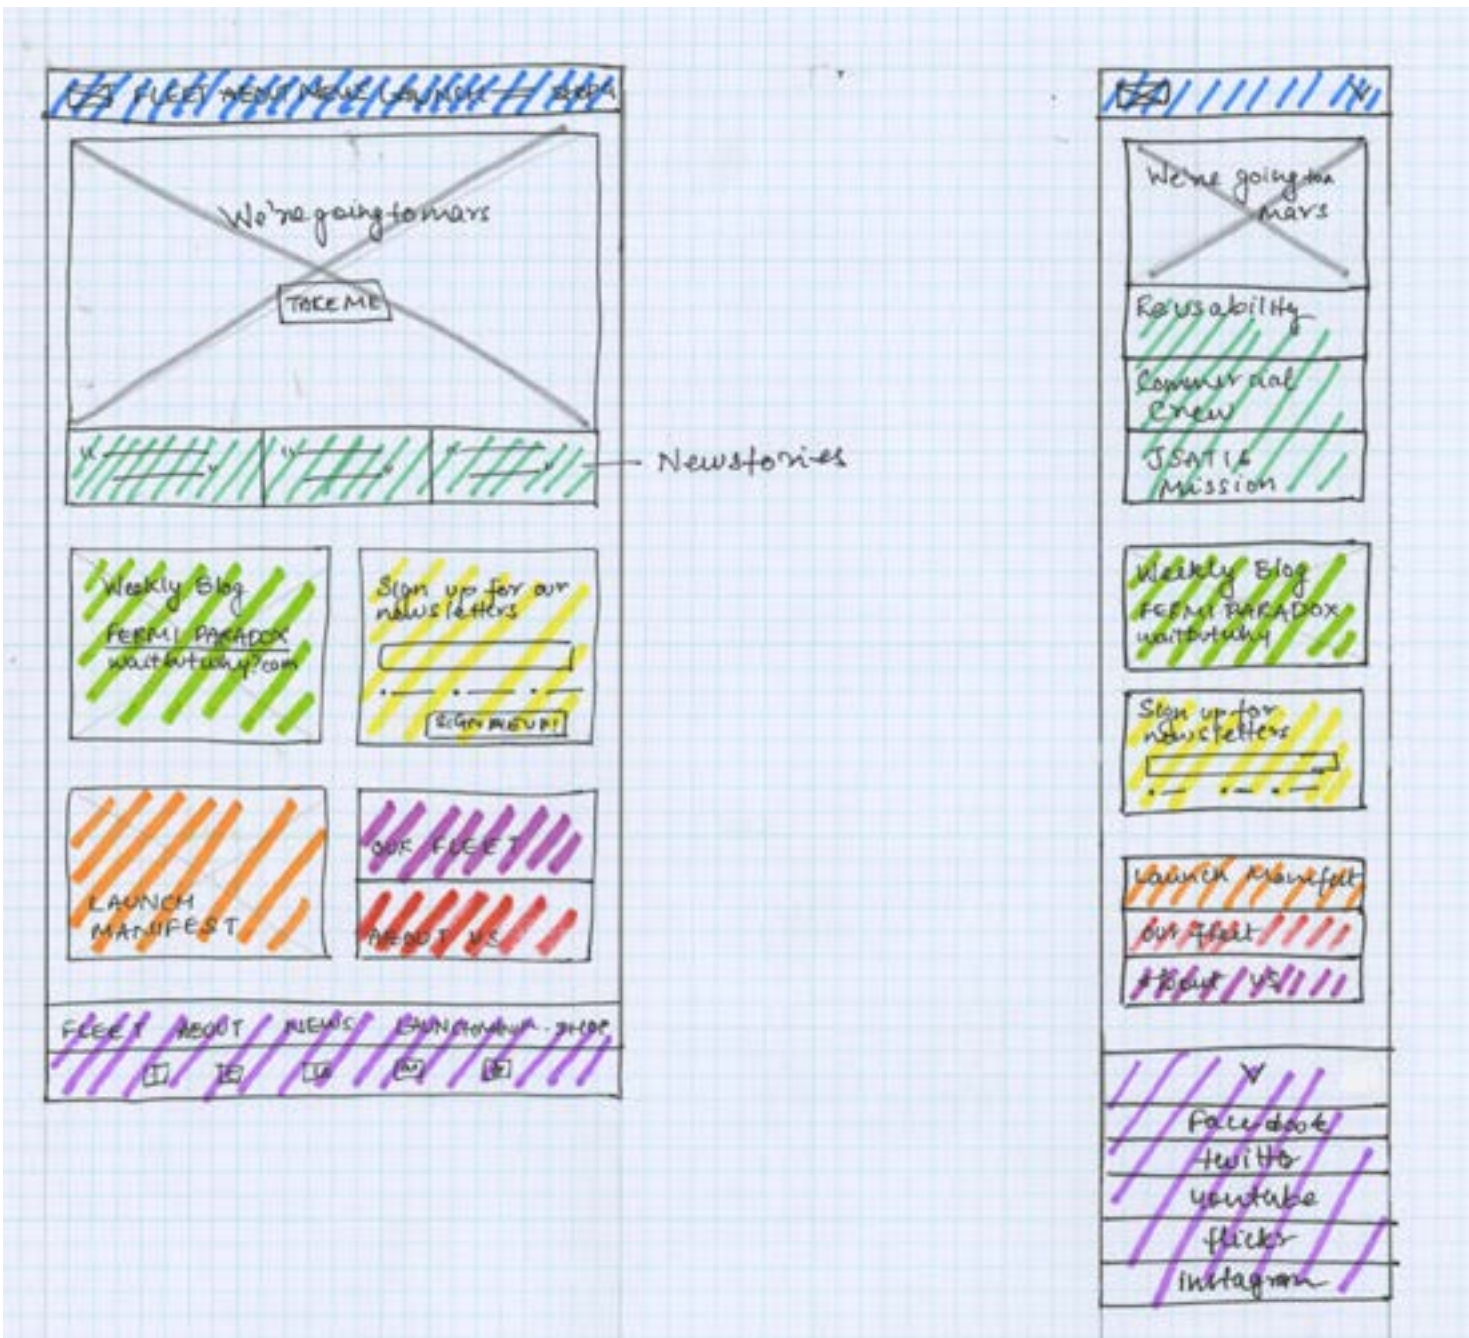 FLEET ABOUT NEWS LAUNCH — SHOP
We're going to mars
TAKE ME
Newstories
Weekly Blog
FERMI PARADOX
waitbutwhy?com
Sign up for our
newsletters
SIGN ME UP!
LAUNCH
MANIFEST
OUR FLEET
ABOUT US
FLEET ABOUT NEWS SHOP
We're going to
mars
Reusability
Commercial
Crew
Mission
Weekly Blog
FERMI PARADOX
waitbutwhy
Sign up for
newsletters
Launch
our fleet
About US
Facebook
youtube
flickr
instagram